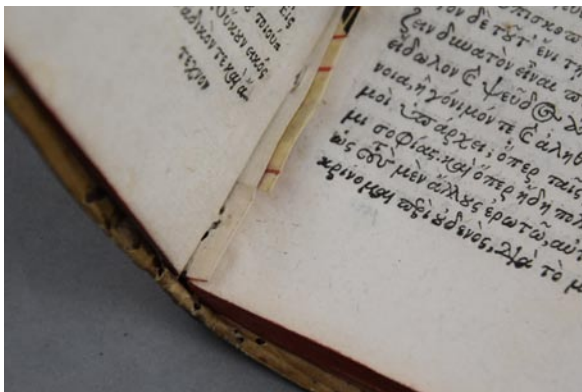 εἰς
τοιού
Οὔκουν εἰκός
τεχνον
δὲ τοῦτ' ἔνι τῇ
ζειν δυνατὸν εἶναι πα
εἴδωλον καὶ ψεῦδος
νοια, ἢ γόνιμόν τε καὶ ἀληθ
μοὶ ὑπάρχει, ὅπερ ταῖς
μι σοφίας. καὶ ὅπερ ἤδη πολ
ὡς τοὺς μὲν ἄλλους ἐρωτῶ, αὐτ
κρίνομαι περὶ οὐδενός, διὰ τὸ μ